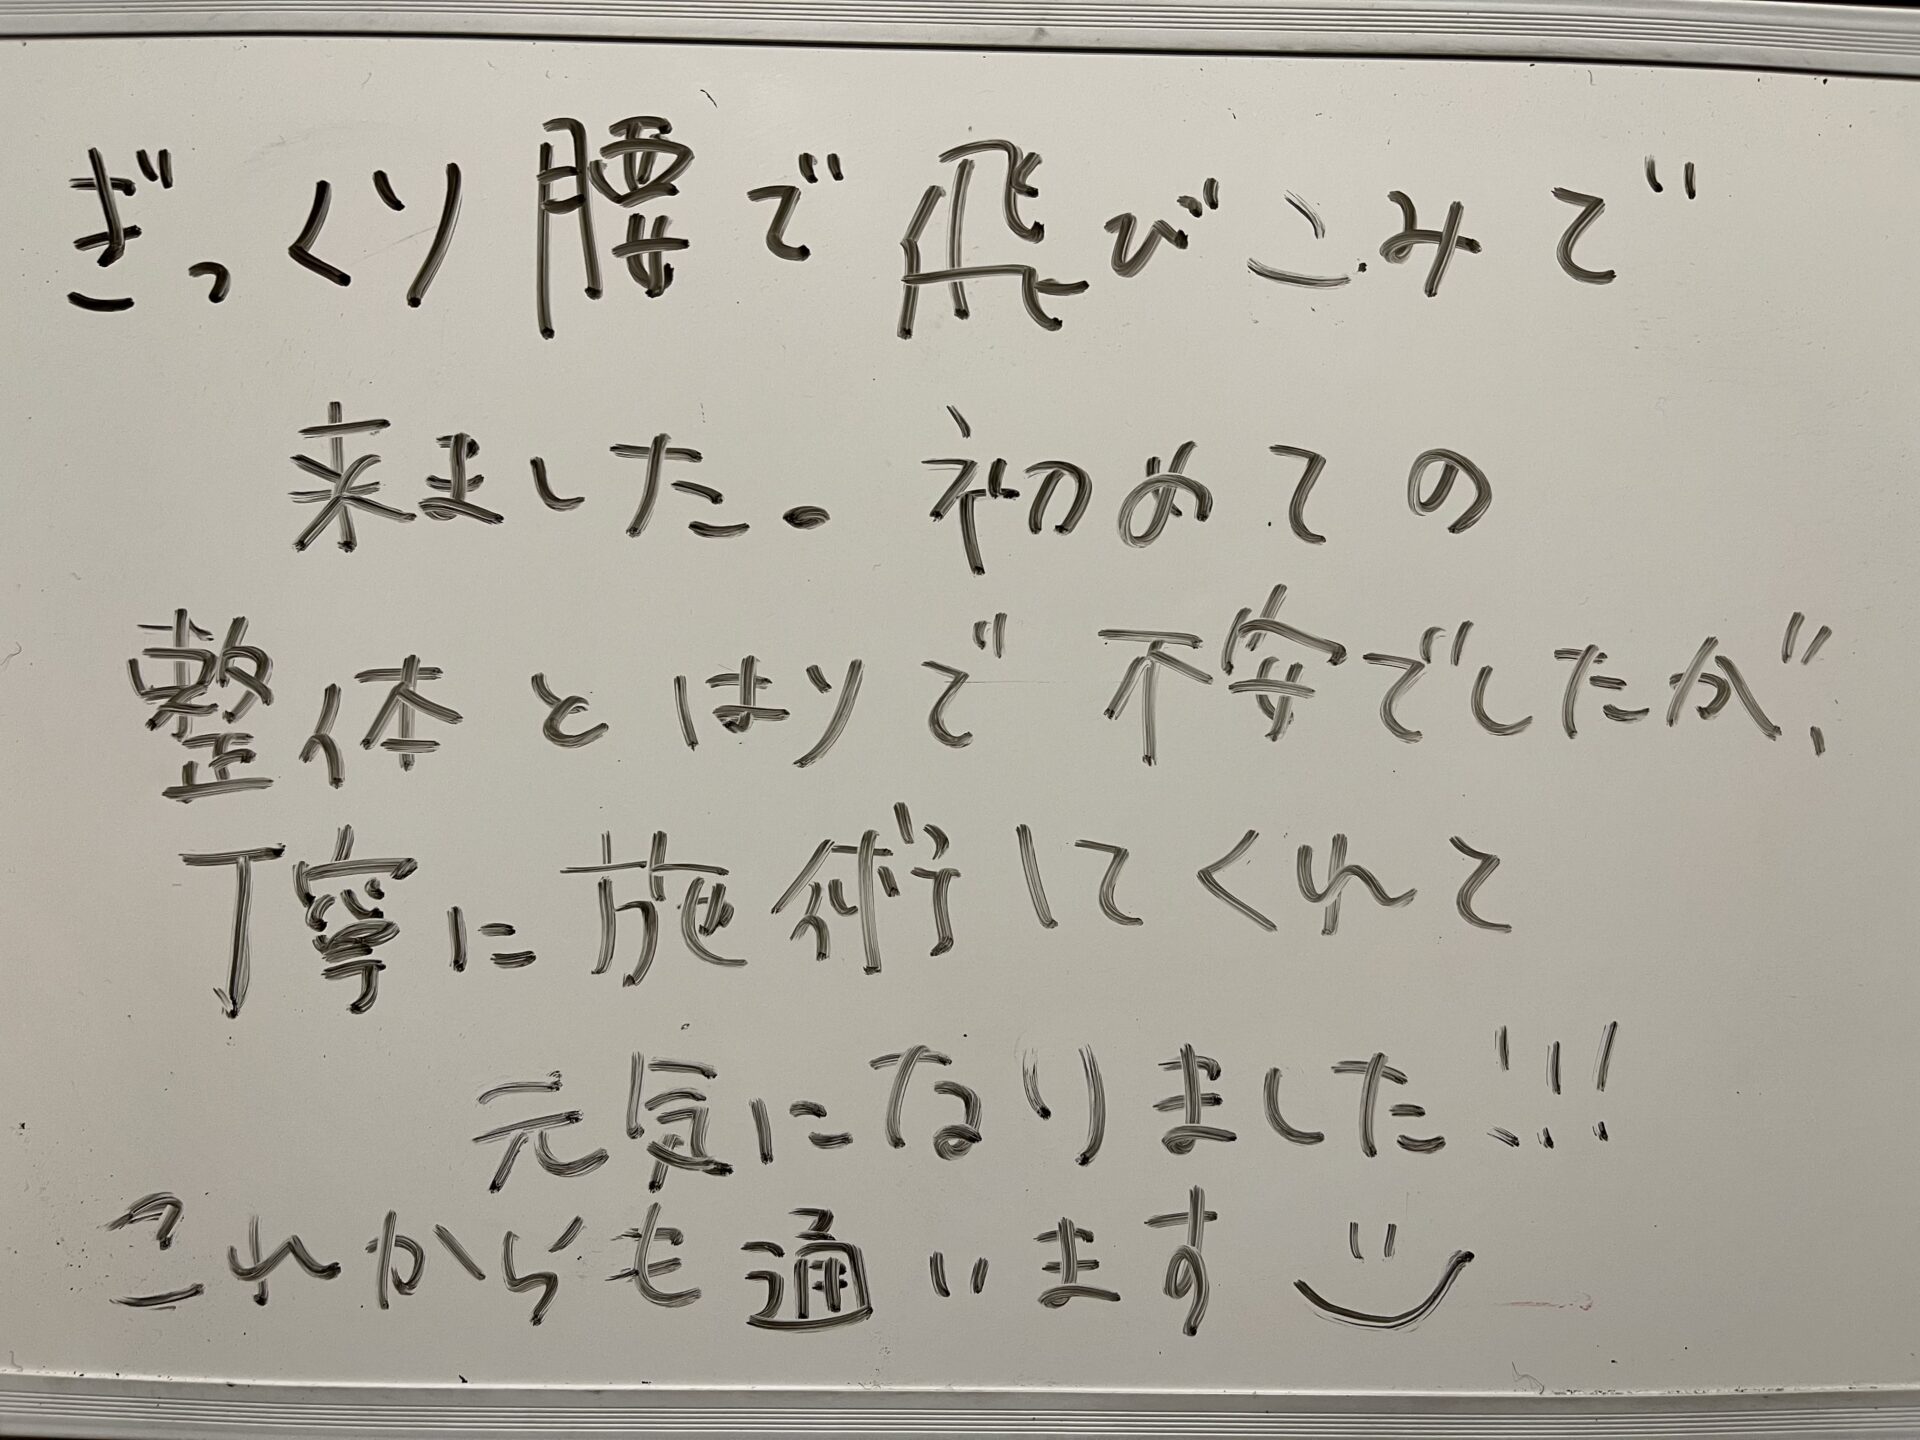 ぎっくり腰で飛びこみで
来ました。初めての
整体とはりで不安でしたが、
丁寧に施術してくれて
元気になりました!!!
これからも通います